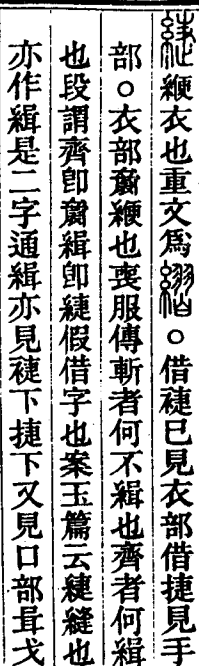 緁緶衣也重文爲緝○借褋已見衣部借捷見手
部○衣部䶒緶也喪服傳斬者何不緝也齊者何緝
也段謂齊卽䶒緝卽緁假借字也案玉篇云緁縫也
亦作緝是二字通緝亦見褋下捷下又見口部咠戈